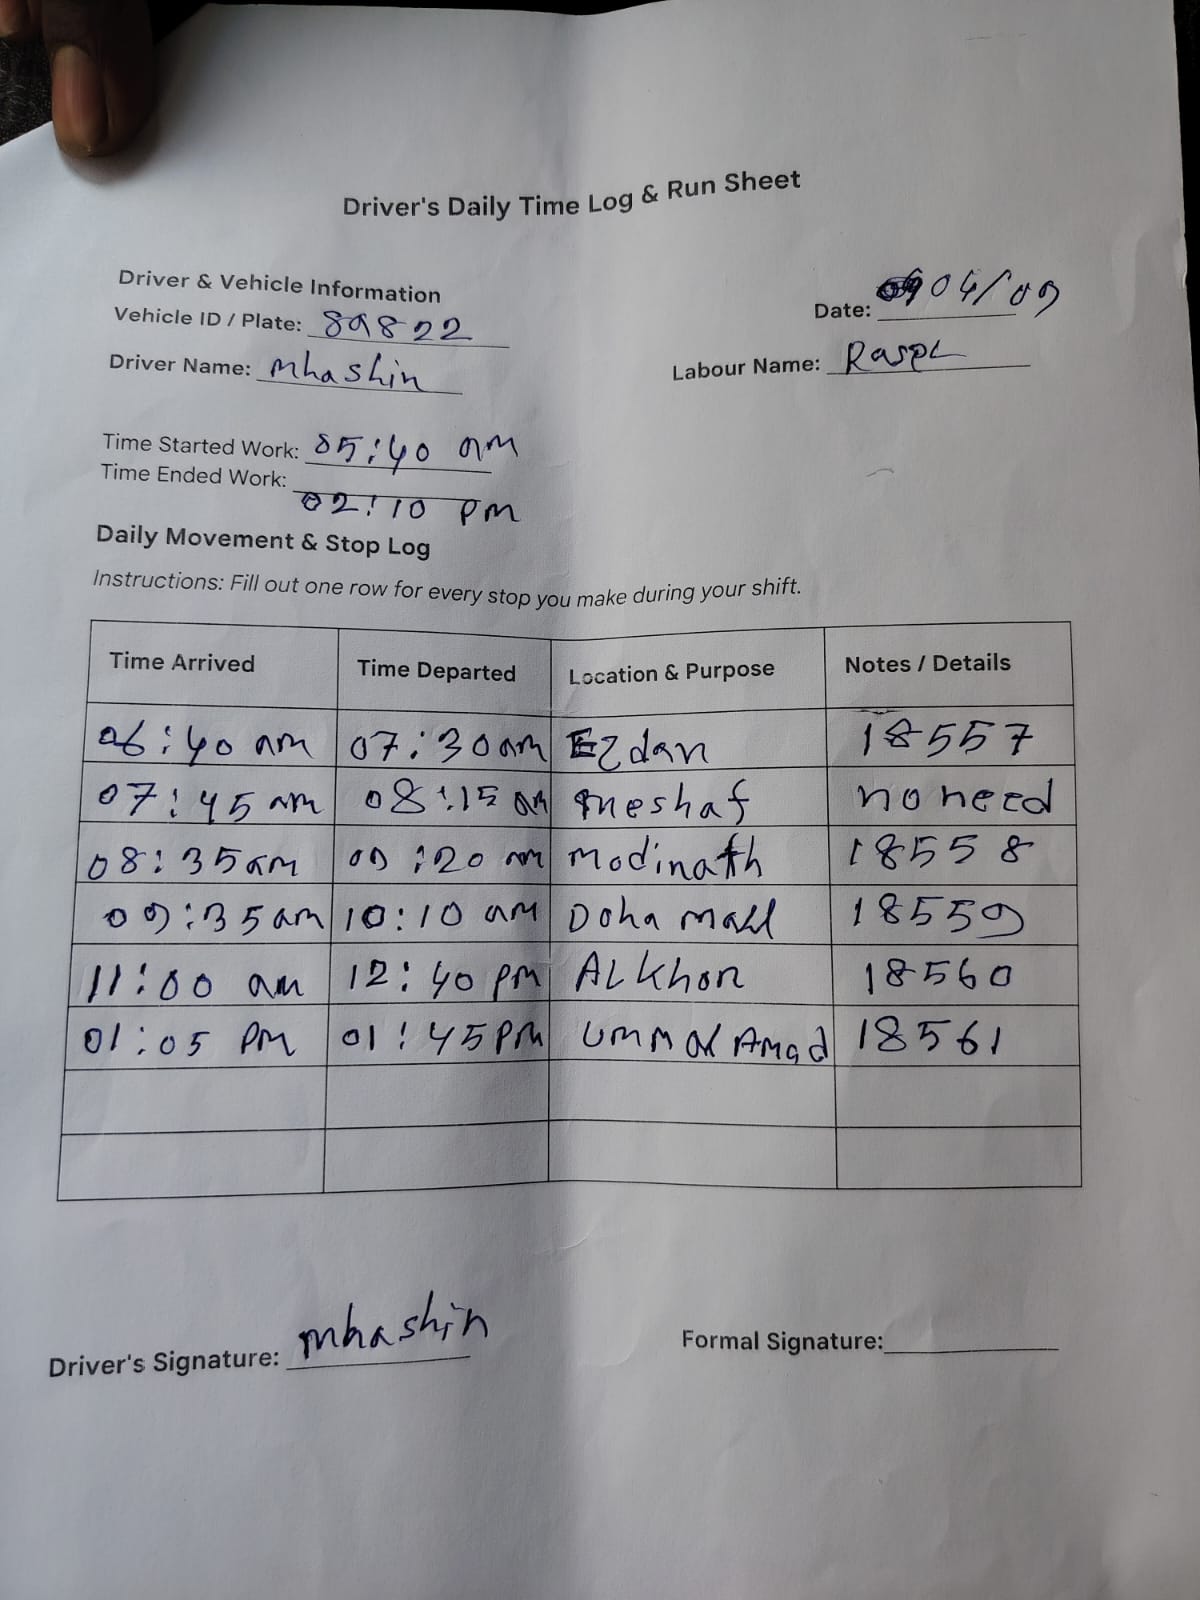 Driver's Daily Time Log & Run Sheet
Driver & Vehicle Information
Vehicle ID / Plate: 89822
Date: 04/09
Driver Name: mhashin
Labour Name: Rasel
Time Started Work: 05:40 am
Time Ended Work: 02:10 pm
Daily Movement & Stop Log
Instructions: Fill out one row for every stop you make during your shift.
Time Arrived Time Departed Location & Purpose Notes / Details
06:40 am 07:30 am Ezdan 18557
07:45 am 08:15 am meshaf no need
08:35 am 09:20 am Modinath 18558
09:35 am 10:10 am Doha mall 18559
11:00 am 12:40 pm AL Khor 18560
01:05 pm 01:45 pm Umm al Amad 18561
Driver's Signature: mhashin
Formal Signature: